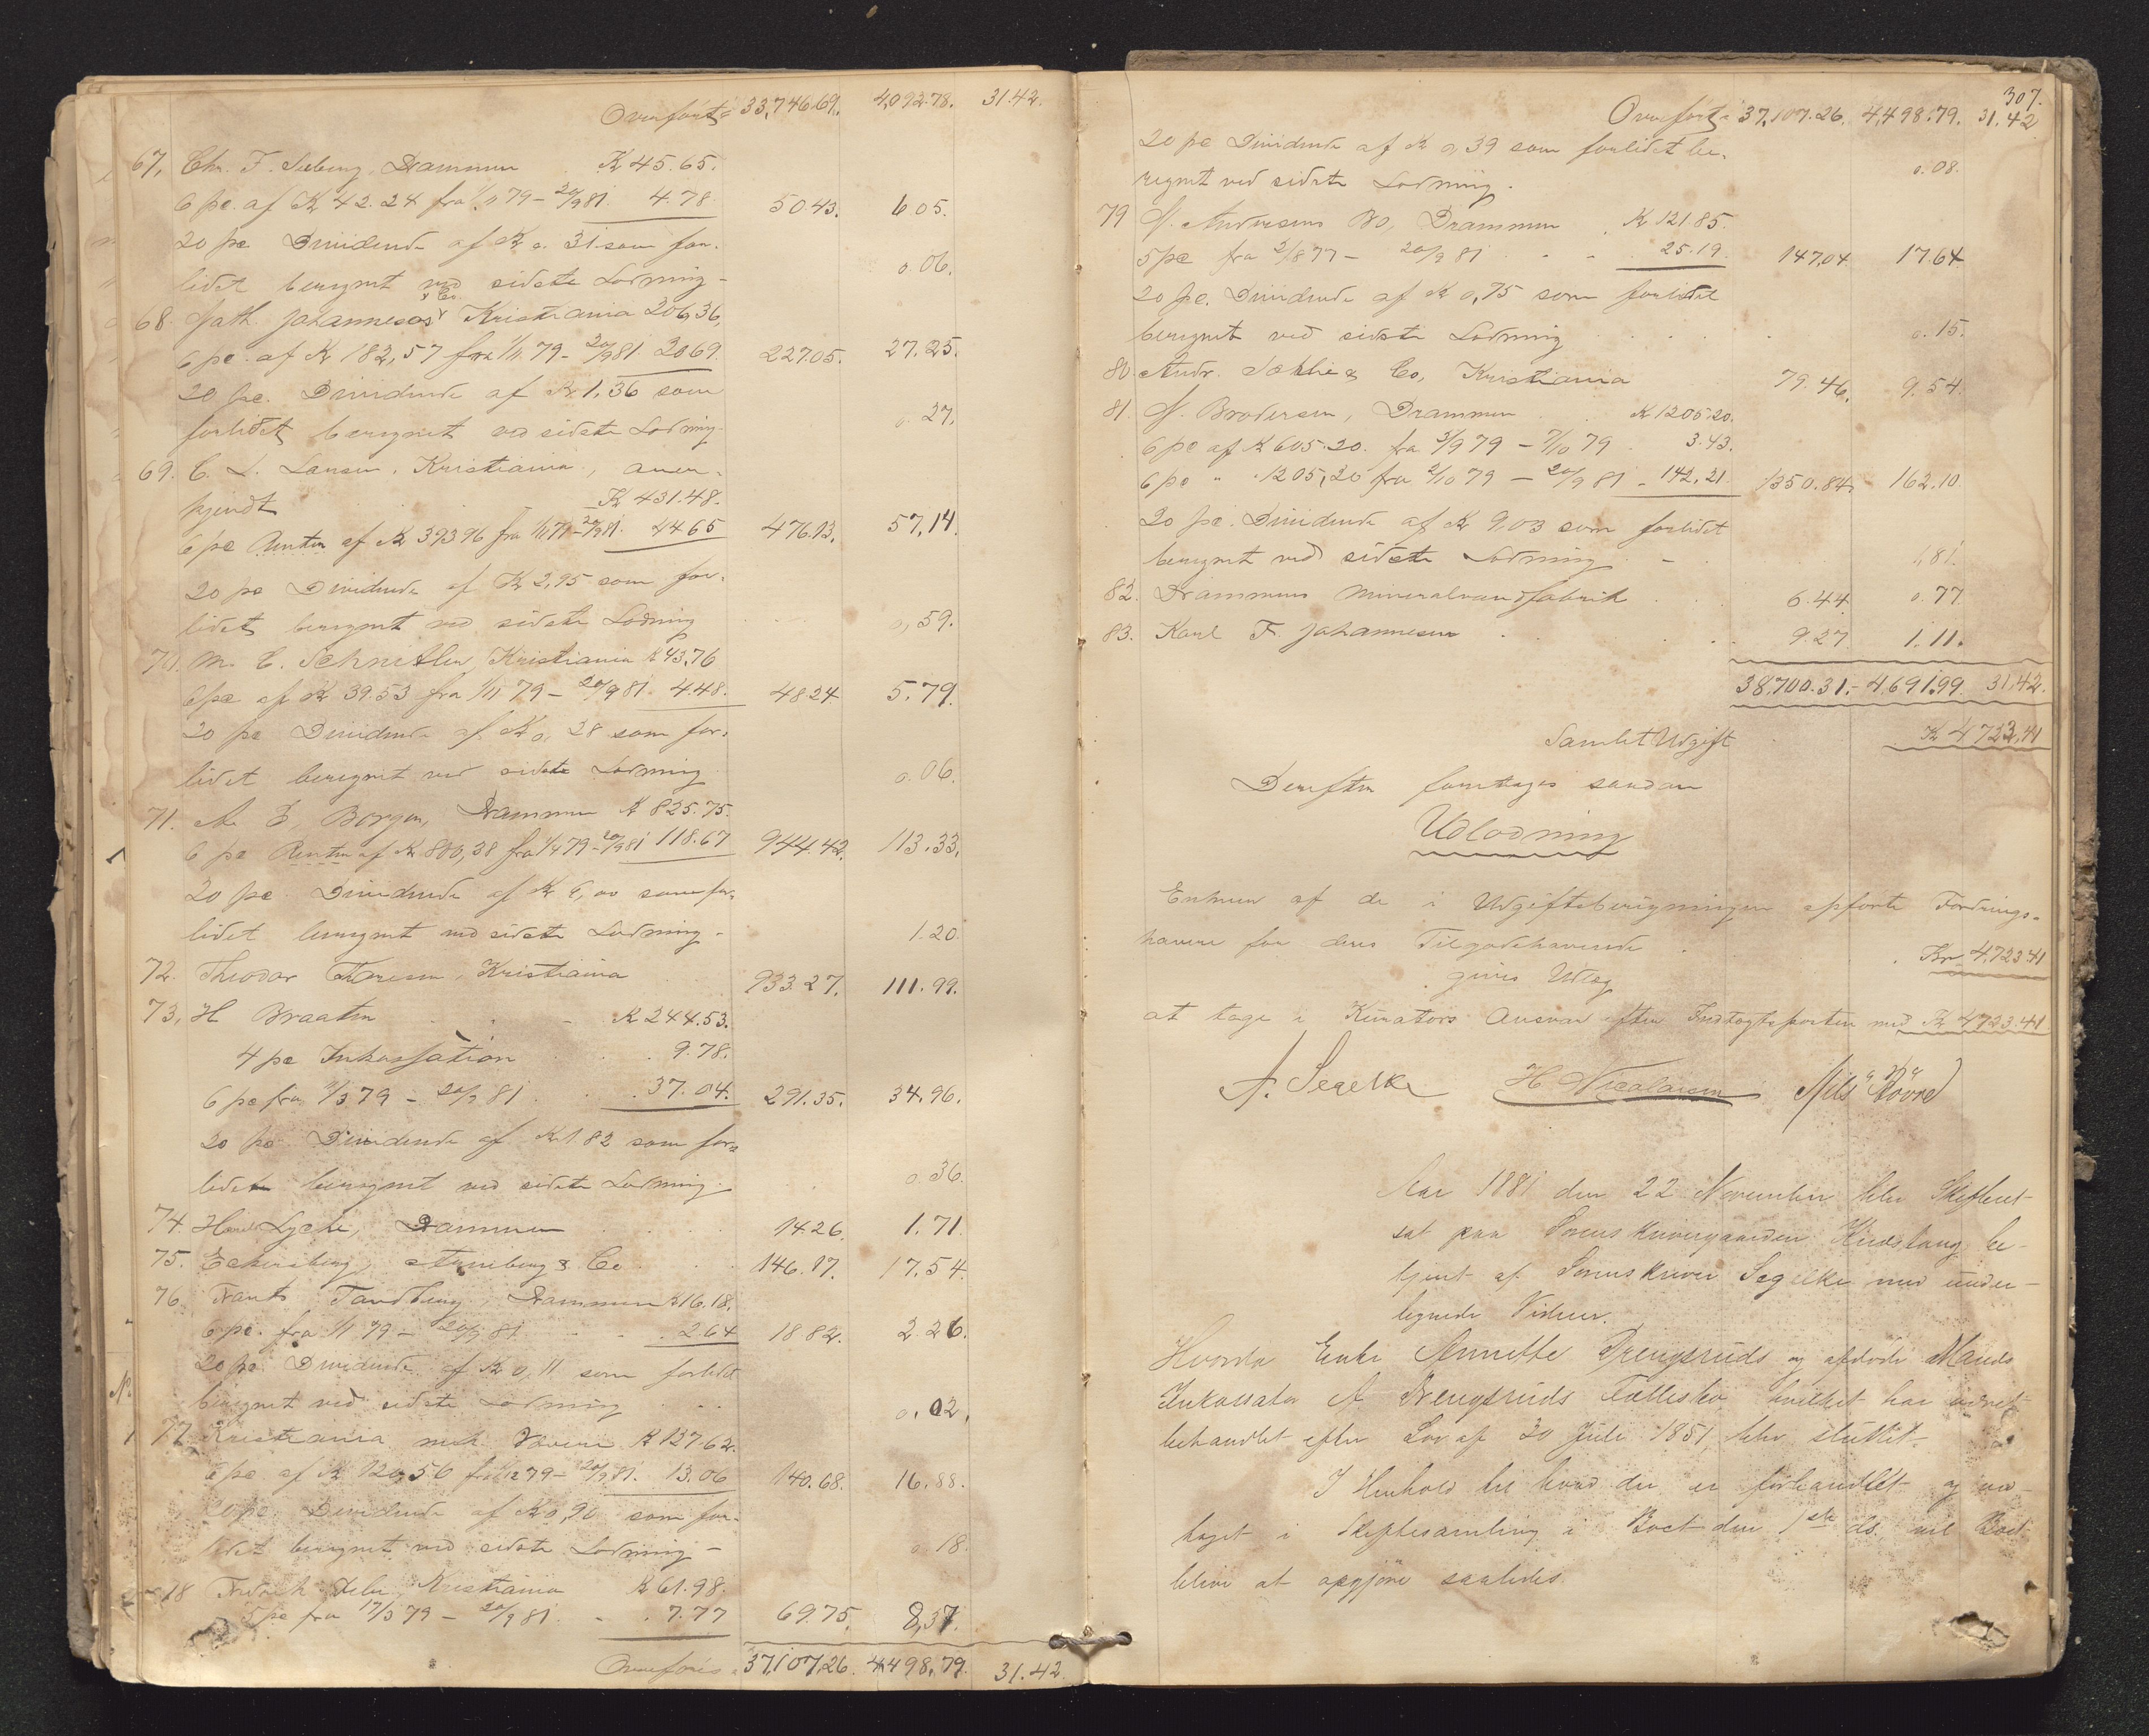 Overført 33,746.69. 4,092.78. 31.42.
67. Chr. F. Seeberg, Drammen K 45.65.
6 pc. af K 42.24 fra 1/11 79 – 20/9 81. 4.78. 50.43. 6 05.
20 pc. Dividende af K 0. 31 som for-
lidet beregnet ved sidste Lodning – 0.06.
& Co.
68. Math. Johannesen Kristiania 206,36,
6 pc. af K 182,57 fra 1/11 79 – 20/9 81. 20 69. 227.05. 27.25.
20 pc. Dividende af K 1.36 som
forlidet beregnet ved sidste Lodning. 0. 27.
69. C. L. Larsen, Kristiania, aner-
kjendt K 431.48.
6 pc Renter af K 393 96 fra 1/11 79 – 20/9 81. 44 65 476.13. 57.14.
20 pc Dividende af K 2,95 som for-
lidet beregnet ved sidste Lodning 0,59.
70. M. C. Schnitler, Kristiania K 43,76
6 pc af K 39.53 fra 1/11 79 – 20/9 81. 4.48. 48.24 5.79.
20 pc Dividende af K 0, 28 som for-
lidet beregnet ved sidste Lodning 0.06.
71. A. E. Borgen, Drammen K 825.75.
6 pc Renter af K 800,38 fra 1/4 79 – 20/9 81 118.67 944.42. 113.33.
20 pc. Dividende af K 6,00 som for-
lidet beregnet ved sidste Lodning – 1.20.
72. Theodor Thoresen, Kristiania 933.27. 111.99.
73. H Braaten – K 244.53.
4 pc Inkassation 9.78.
6 pc fra 3/3 79 – 20/9 81. 37.04. 291.35. 34.96.
20 pc Dividende af K 1 82 som for-
lidet beregnet ved sidste Lodning. 0.36.
74. Lyche, Drammen 14.26. 1.71.
75. Eckersberg, & Co 146.17. 17.54.
76. Frants Tandberg, Drammen K 16.18.
6 pc. fra 1/1 79 – 20/9 81. 2 64 18 82. 2.26.
20 pc. Dividende af K 0,11 som forlidet
beregnet ved sidste Lodning 0.02.
77. Kristiania mek. Væveri K 127 62.
6 pc af K 120,56 fra 1/12 79 – 20/9 81. 13.06 140.68. 16.88.
20 pc. Dividende af K 0,90 som for-
lidet beregnet ved sidste Lodning – 0.18.
78 Fredrik Kristiania K 61.98.
5 pc fra 17/3 79 – 20/9 81. 7.77 69.75. 8,37.
Overføres 37,107,26. 4,498,79. 31.42.
307.
Overført 37,107.26. 4,498.79. 31.42
20 pc Dividende af K 0,39 som forlidet be-
regnet ved sidste Lodning. 0.08.
79 N. Andersens Bo, Drammen K 121.85.
5 pc fra 2/8 77 – 20/9 81 25.19. 147,04 17.64
20 pc. Dividende af K 0,75 som forlidet
beregnet ved sidste Lodning 0.15.
80. Andr. & Co, Kristiania 79.46. 9.54.
81. N. Brodersen, Drammen K 1205.20.
6 pc af K 605.20. fra 3/9 79 – 7/10 79 3.43.
6 pc " 1205,20 fra 7/10 79 – 20/9 81 – 142.21. 1350.84. 162.10.
20 pc. Dividende af K 9,03 som forlidet
beregnet ved sidste Lodning – 1,81.
82. Drammens Mineralvandfabrik 6.44 0.77.
83. Karl F. Johannesen 9.27. 1.11.
38,700.31.– 4,691.99. 31,42.
Samlet Udgift K 4723,41
Derefter foretages saadan
Udlodning
Enhver af de i Udgiftsberegningen opførte Fordrings-
havere for deres Tilgodehavende Kr 4,723.41
gives Udlæg
at tage i Kurators Ansvar efter Indtægtsposten med K 4723.41
A. Segelke H Nicolaisen Nils Røvre
Aar 1881 den 22 November blev Skifteret
sat paa Sorenskrivergaarden be-
tjent af Sorenskriver Segelke med under-
tegnede Vidner.
Hvorda Enke Annette Drengsruds og afdøde Mands
Inkassator A Drengsruds Fællesbo, hvilket har været
behandlet efter Lov af 30 Juli 1851, blev sluttet.
I Henhold til hvad der er forhandlet og ved-
taget i Skiftesamling i Boet den 1ste ds. vil Boet
blive at opgjøre saaledes